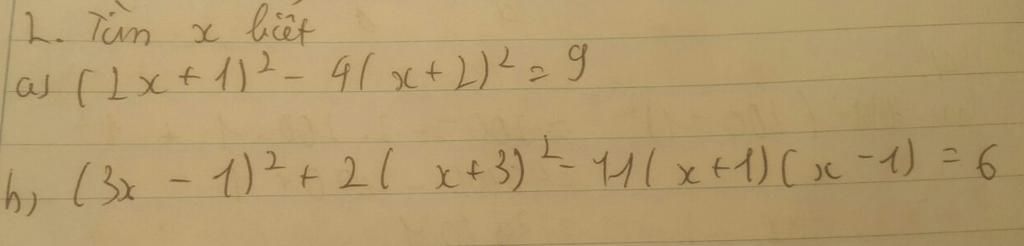 2. Tìm x biết
a) (2x + 1)² - 4(x + 2)² = 9
b) (3x - 1)² + 2(x + 3)² - 11(x + 1)(x - 1) = 6